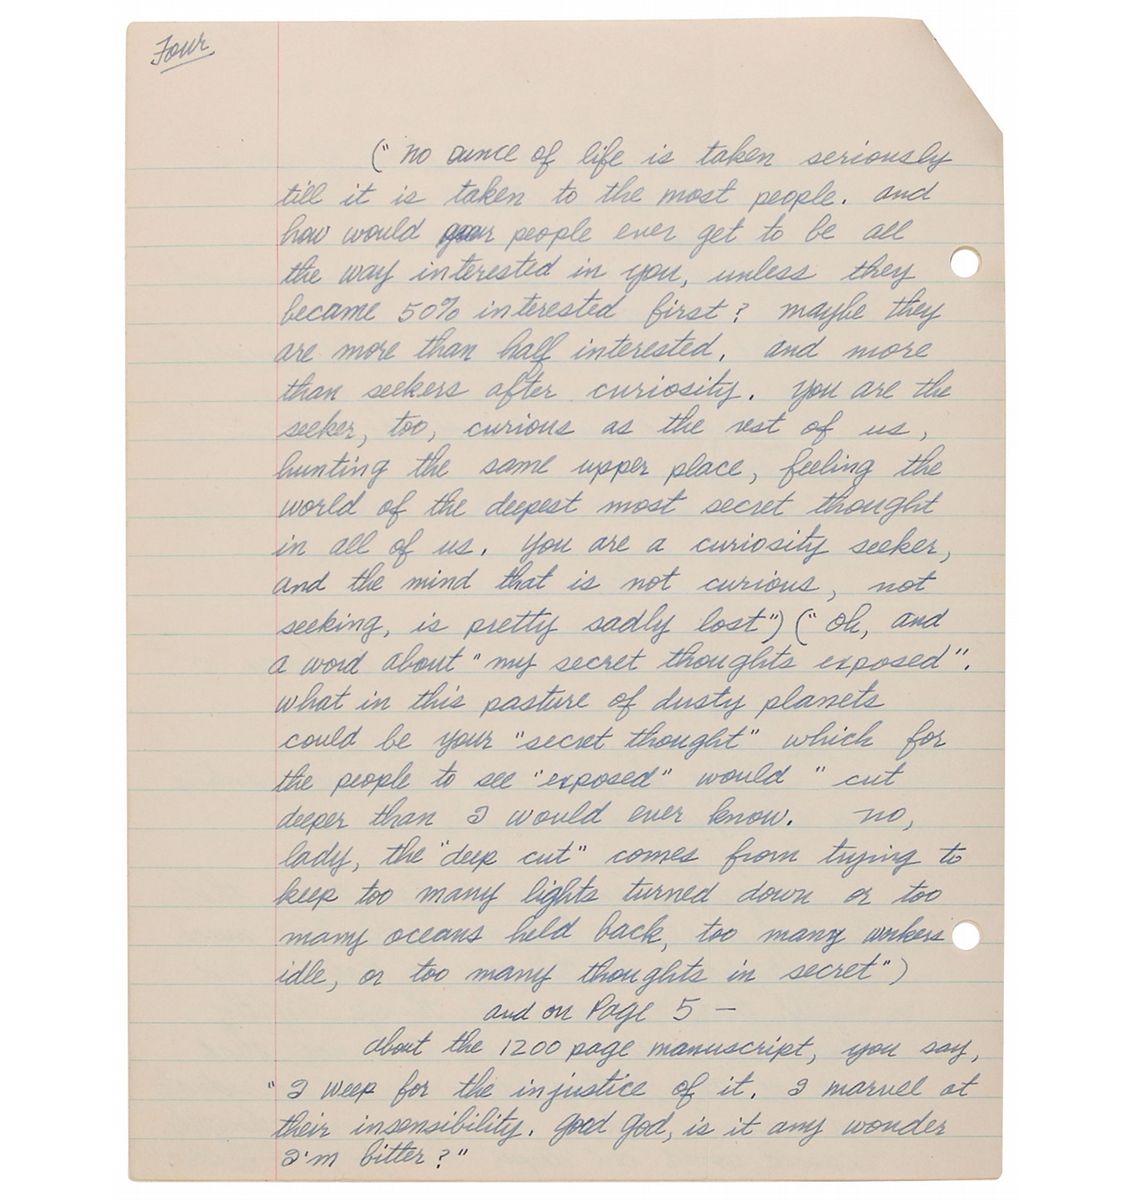 Four
(" no ounce of life is taken seriously
till it is taken to the most people. and
how would your people ever get to be all
the way interested in you, unless they
became 50% interested first? maybe they
are more than half interested, and more
than seekers after curiosity. you are the
seeker, too, curious as the rest of us,
hunting the same upper place, feeling the
world of the deepest most secret thought
in all of us. you are a curiosity seeker,
and the mind that is not curious, not
seeking, is pretty sadly lost") (" oh, and
a word about "my secret thoughts exposed".
what in this pasture of dusty planets
could be your "secret thought" which for
the people to see "exposed" would " cut
deeper than I would ever know. no,
lady, the "deep cut" comes from trying to
keep too many lights turned down or too
many oceans held back, too many workers
idle, or too many thoughts in secret")
and on Page 5 —
about the 1200 page manuscript, you say,
" I weep for the injustice of it. I marvel at
their insensibility. good god, is it any wonder
I'm bitter?"